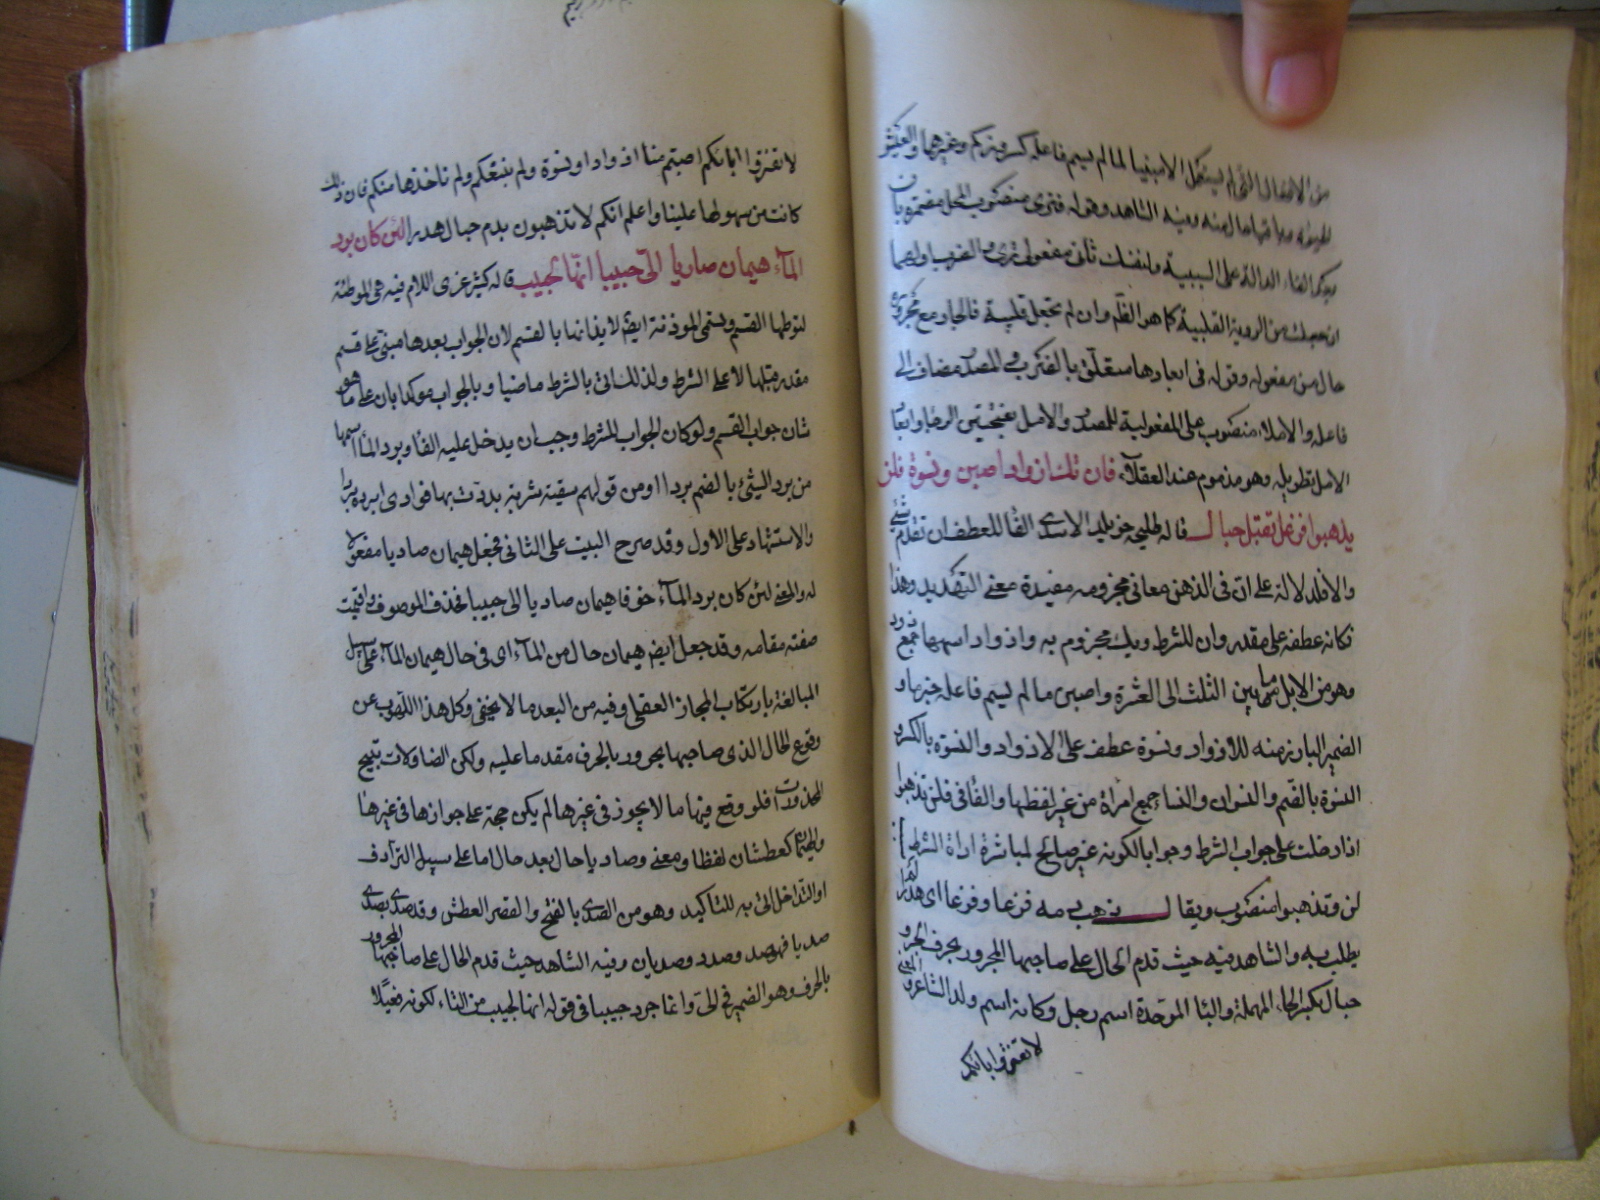 من الافعال التى لم يستعمل الا مبنيا لما لم يسم فاعله كسر وزكم وغيرهما والعيش
الحيوة وفيه الشاهد وقوله فترى منصوب المحل مضمرة بان
بعد الفاء الدالة على السببية ولنفسك ثانى مفعولى ترى
ان جعلت من الروية القلبية كما هو الظ وان لم تجعل قلبية فالجار مع مجروره
حال من مفعوله وقوله فى ابعادها متعلق بالضرب والمصدر مضاف الى
فاعله والاملا منصوب على المفعولية للمصدر والامل بفتحتين الرجا وابعاد
الامل تطويله وهو مذموم عند العقلاء فان تك اذواد اصبن ونسوة فلن
يذهبوا فرغا بقتل حبال قاله طليحة خويلد الاسدى الفا للعطف ان تقدم شئ
والا فلدلالة على ان فى الذهن معانى مجزومه مفيدة معنى التضديد وهذا
فكانه عطفه على مقدر وان للشرط ويك مجزوم به واذواد اسمها جمع ذود
وهو من الابل ما بين الثلث الى العشرة واصبن ما لم يسم فاعله خبرها و
الضمير البارز منه للاذواد ونسوة عطف على الاذواد والنسوة بالكسر و
النسوة بالضم والنسوان والنسا جمع امراة من غير لفظها والفا فى فلن تذهبوا
اذا دخلت على جواب الشرط وجوبا لكونه غير صالح لمباشرة اداة الشرط
لن وتذهبوا منصوب ويقال ذهب دمه فرغا وفرغا اى هدرا لم
يطلب به والشاهد فيه حيث قدم الحال على صاحبها المجرور بحرف الجر و
حبال بكسر الحاء المهملة والبا الموحدة اسم رجل وكانه اسم ولد الشاعر والمعنى
لا تغتروا بانكم
لا تغتروا بانكم اصبتم منا اذوادا ونسوة ولم نتبعكم ولم ناخذها منكم فان ذلك
كانت من سهولها علينا واعلم انكم لا تذهبون بدم حبال هدرا لئن كان برد
الماء هيمان صاديا الىّ حبيبا انها لحبيب قاله كثير عزى اللام فيه هى الموطئة
لتوطها القسم وتسمى الموذنة ايض لايذانها بالقسم لان الجواب بعدها مبنى على قسم
مقدر قبلها لا على الشرط ولذلك اتى بالشرط ماضيا وبالجواب موكدا بان على ما هو
شان جواب القسم ولو كان الجواب للشرط وجب ان يدخل عليه الفا وبرد الما اسمها
من برد الشئ بالضم بردا او من قولهم سقيته شربة بردت بها فوادى ابرده بردا
والاستشهاد على الاول وقد صرح البيت على الثانى فجعل هيمان صاديا مفعولا
له والمعنى لئن كان برد الماء جوفا هيمان صاديا الى حبيبا فحذف الموصوف واقيمت
صفته مقامه وقد جعل ايض هيمان حال من الماء اى فى حال هيمان الماء على سبيل
المبالغة بارتكاب المجاز العقلى وفيه من البعد ما لا يخفى وكل هذا اللهرب عن
وقوع الحال الذى صاحبها مجرور بالحرف مقدما عليه ولكن الضرورات تبيح
المحذورات فلو وقع فيها ما لا يجوز فى غيرها لم يكن حجة على جوازها فى غيرها
والهيمان كعطشان لفظا ومعنى وصاديا حال بعد حال اما على سبيل الترادف
او التداخل اتى به للتاكيد وهو من الصدى بالفتح والقصر العطش وقد صدى يصدى
صديا فهو صد وصدد وصديان وفيه الشاهد حيث قدم الحال على صاحبها المجرور
بالحرف وهو الضمير فى الىّ وانما جرد حبيبا فى قوله انها لحبيب من التاء لكونه فعيلا